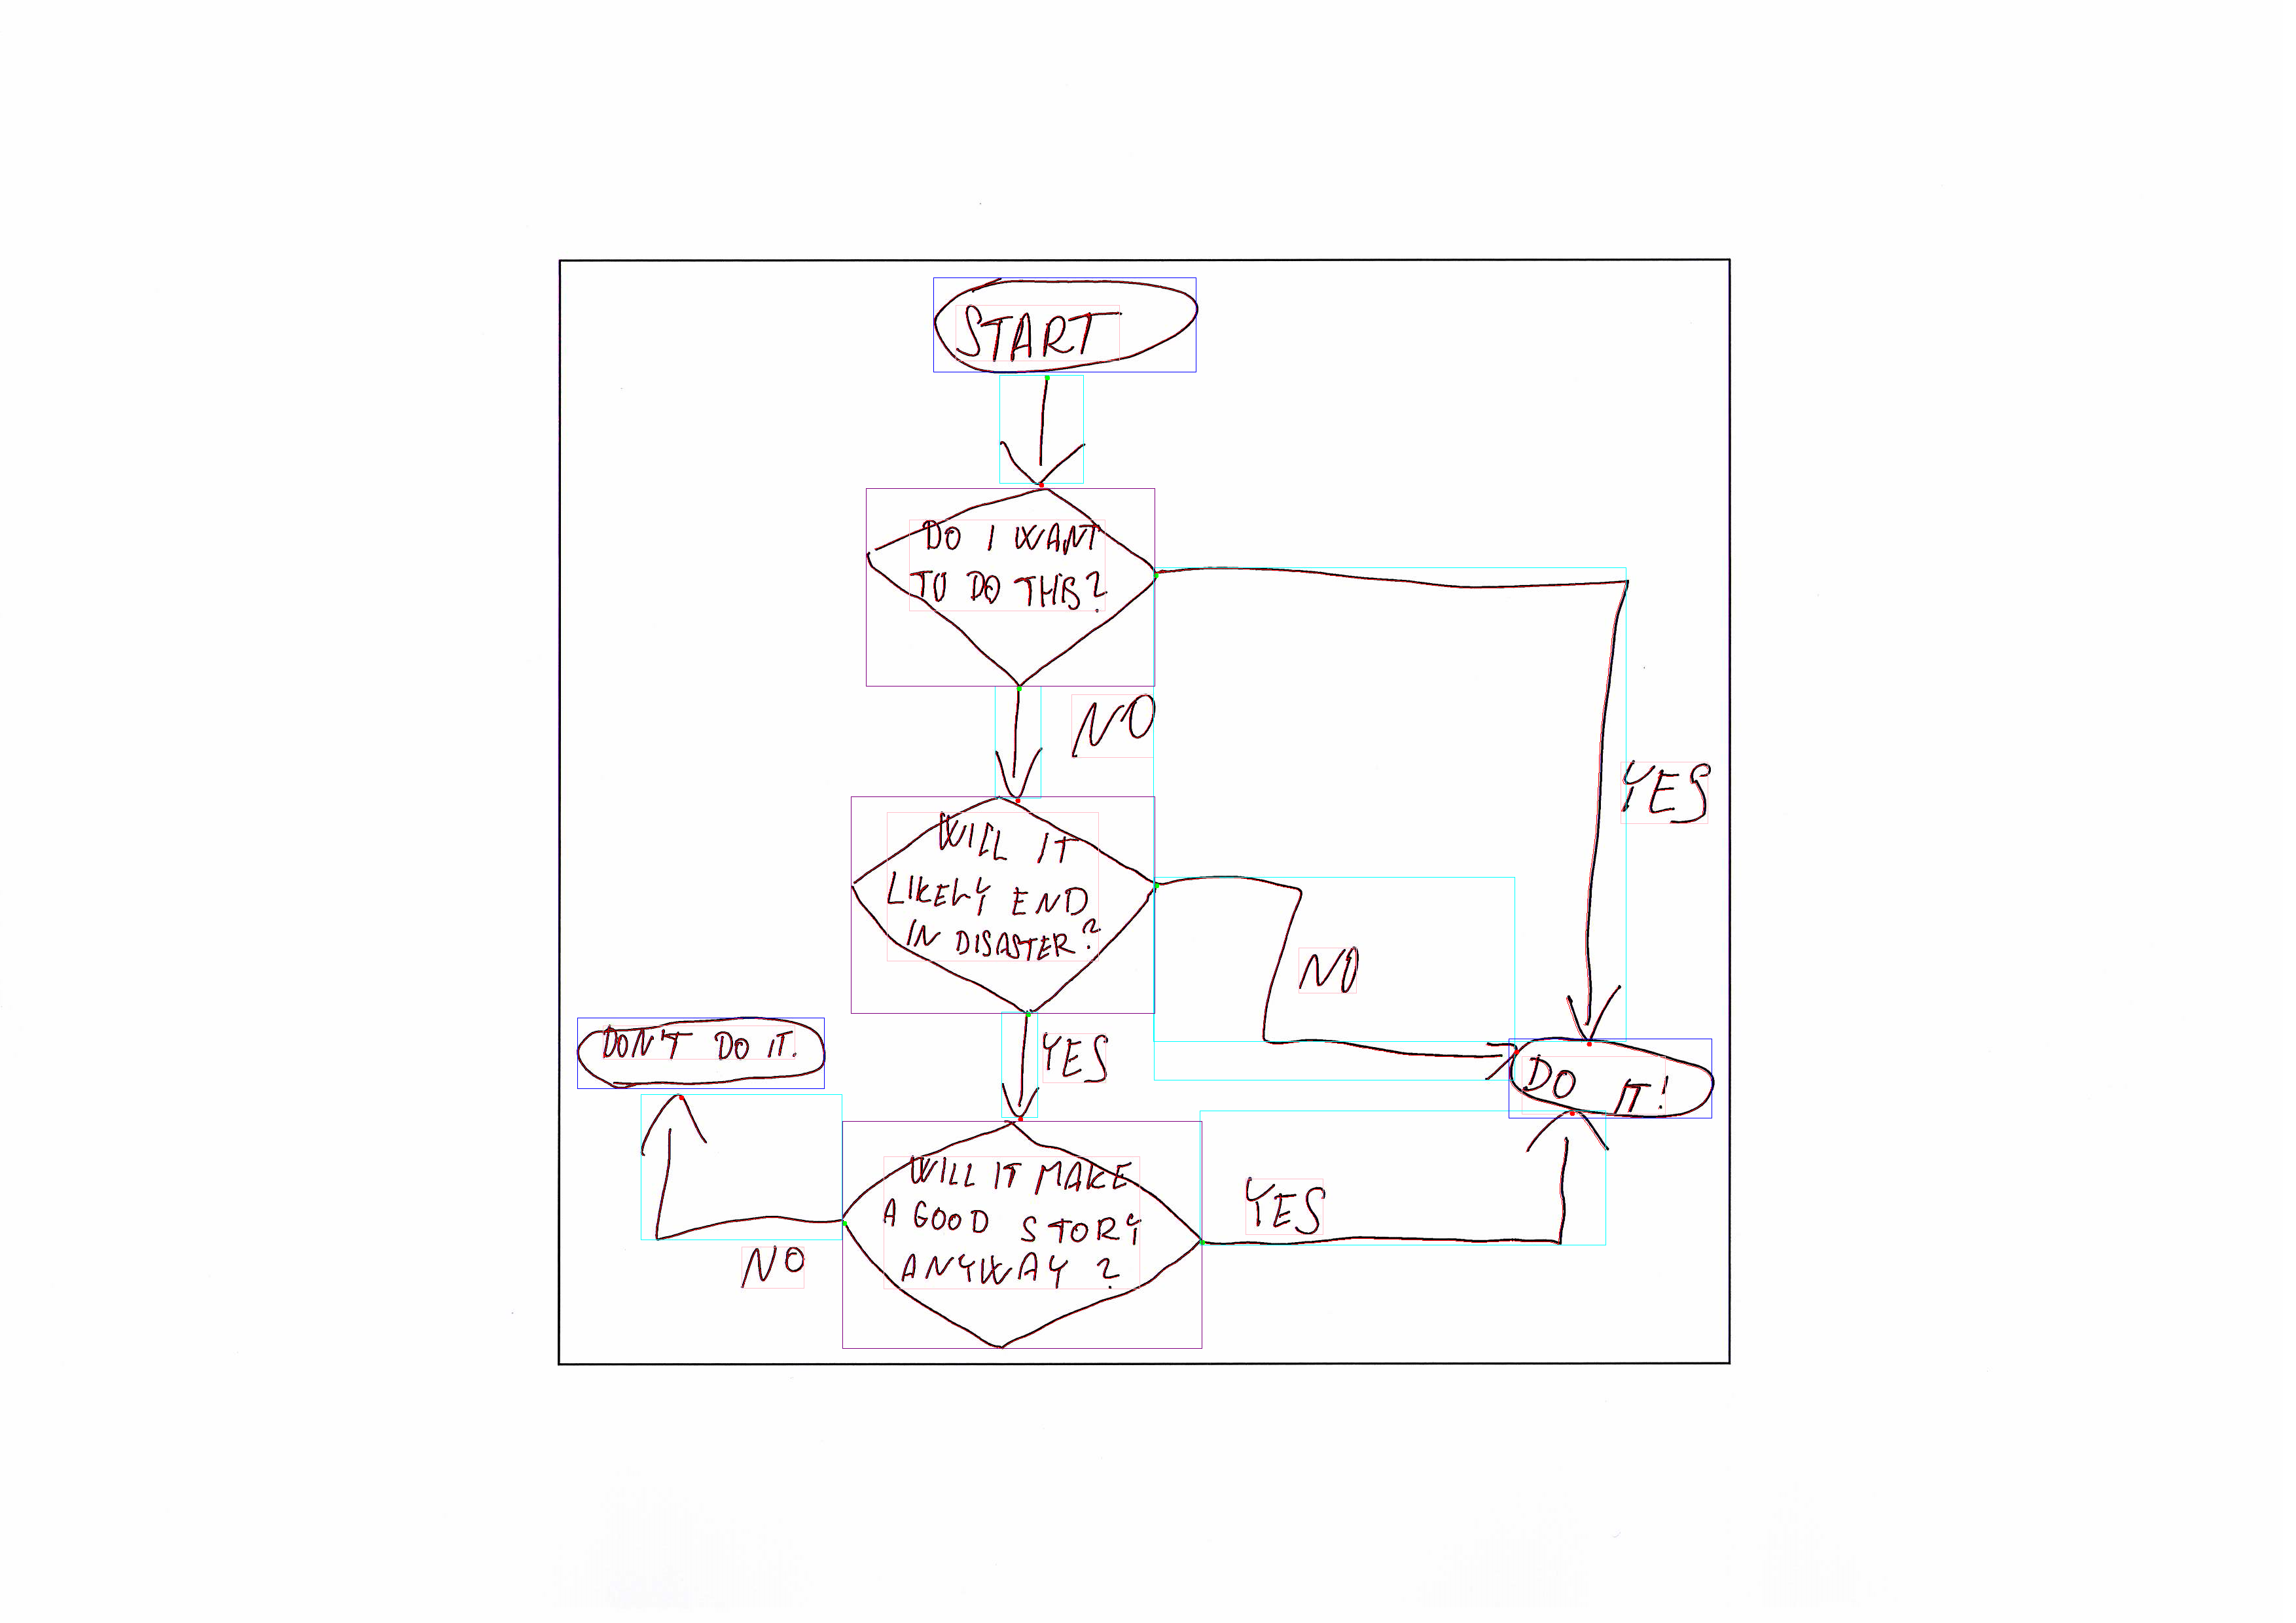 START
DO I WANT
TO DO THIS?
NO
YES
WILL IT
LIKELY END
IN DISASTER?
NO
YES
DON'T DO IT.
DO IT!
WILL IT MAKE
A GOOD STORY
ANYWAY?
YES
NO